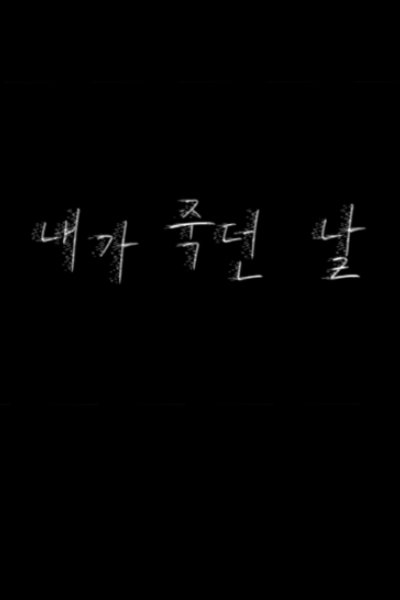 내가 죽던 날